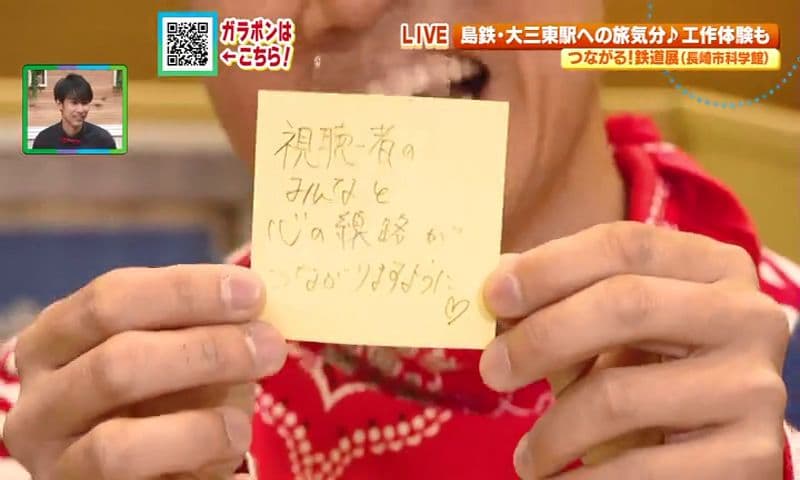 ガラポンは
←こちら!
LIVE
島鉄・大三東駅への旅気分♪工作体験も
つながる!鉄道展(長崎市科学館)
視聴者の
みんなと
心の線路が
つながりますように♡